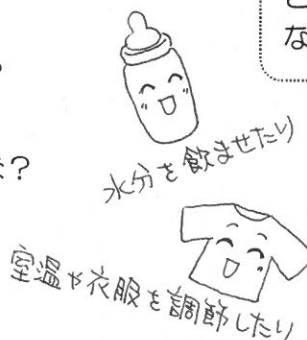 な
？
水分を飲ませたり
室温や衣服を調節したり